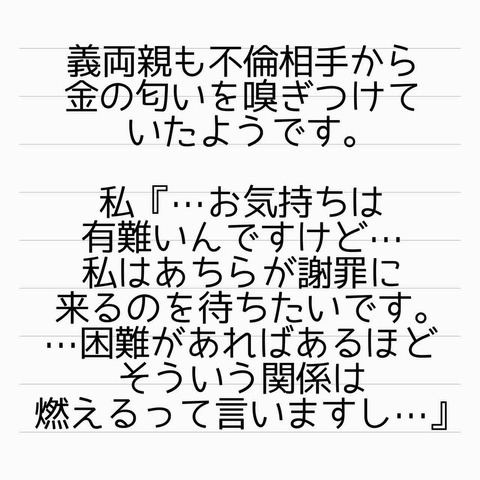 義両親も不倫相手から
金の匂いを嗅ぎつけて
いたようです。
私『…お気持ちは
有難いんですけど…
私はあちらが謝罪に
来るのを待ちたいです。
…困難があればあるほど
そういう関係は
燃えるって言いますし…』